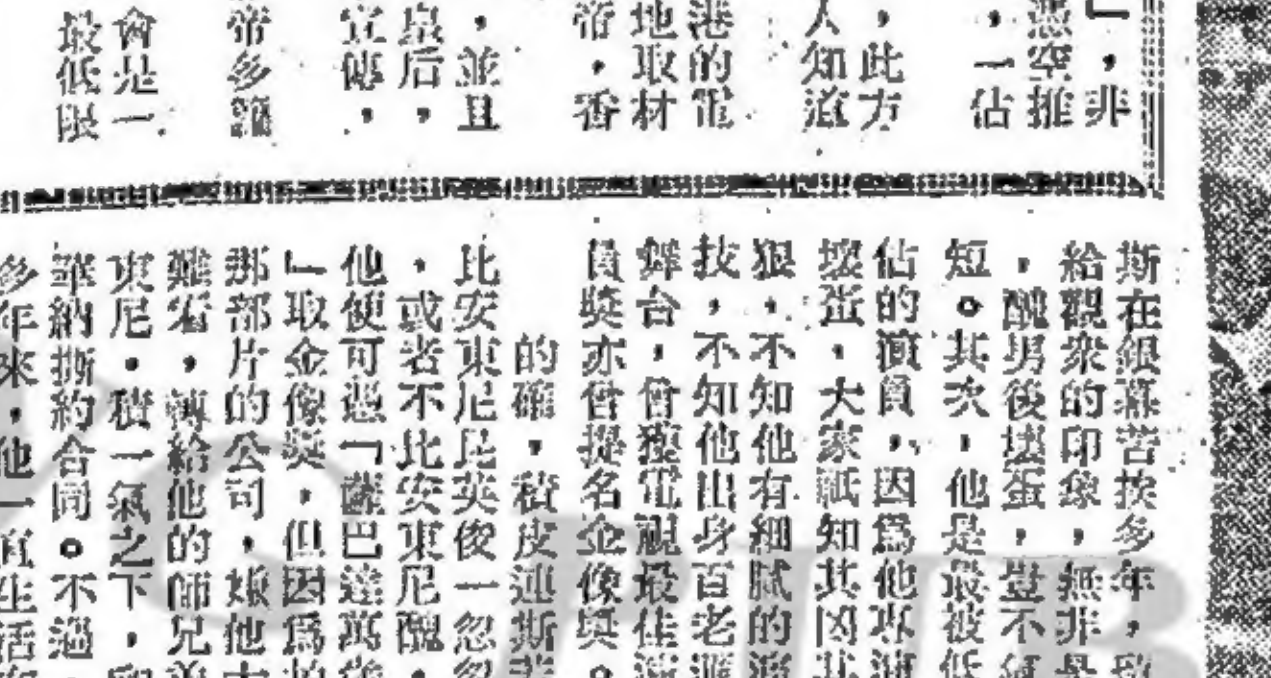 」，非
無空推
，一佔
，此方
人知道
港的電
地取材
帝，香
，並且
皇后，
宣傳，
帝多
會是一
最低限
斯在銀幕苦挨多年，
給觀衆的印象，無非是
，醜男後壞蛋，豈不
短。其次，他是最被低
佔的演員，因爲他專演
壞蛋，大家祇知其凶其
狠，不知他有細膩的演
技，不知他出身百老滙
舞台，曾獲電視最佳演
員獎亦曾提名金像獎。
的確，積皮連斯
比安東尼昆英俊一
，或者不比安東尼醜，
他便可憑「薩巴達萬
」取金像獎，但因爲
那部片的公司，嫌他
難看，轉給他的師兄
東尼，積一氣之下，
華納撕約合同。不過，
多年來，他一直生活